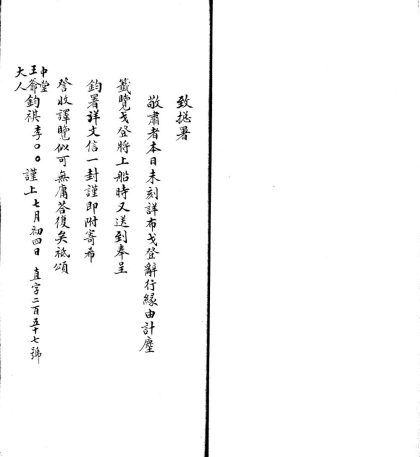 致總署
敬肅者本日未刻詳布戈登辭行緣由計塵
籤覽戈登將上船時又送到奉呈
鈞署詳文信一封謹即附寄希
詧收譯覽似可無庸答復矣祗頌
中堂
王爺鈞祺李〇〇謹上七月初四日 直字二百五十七號
大人